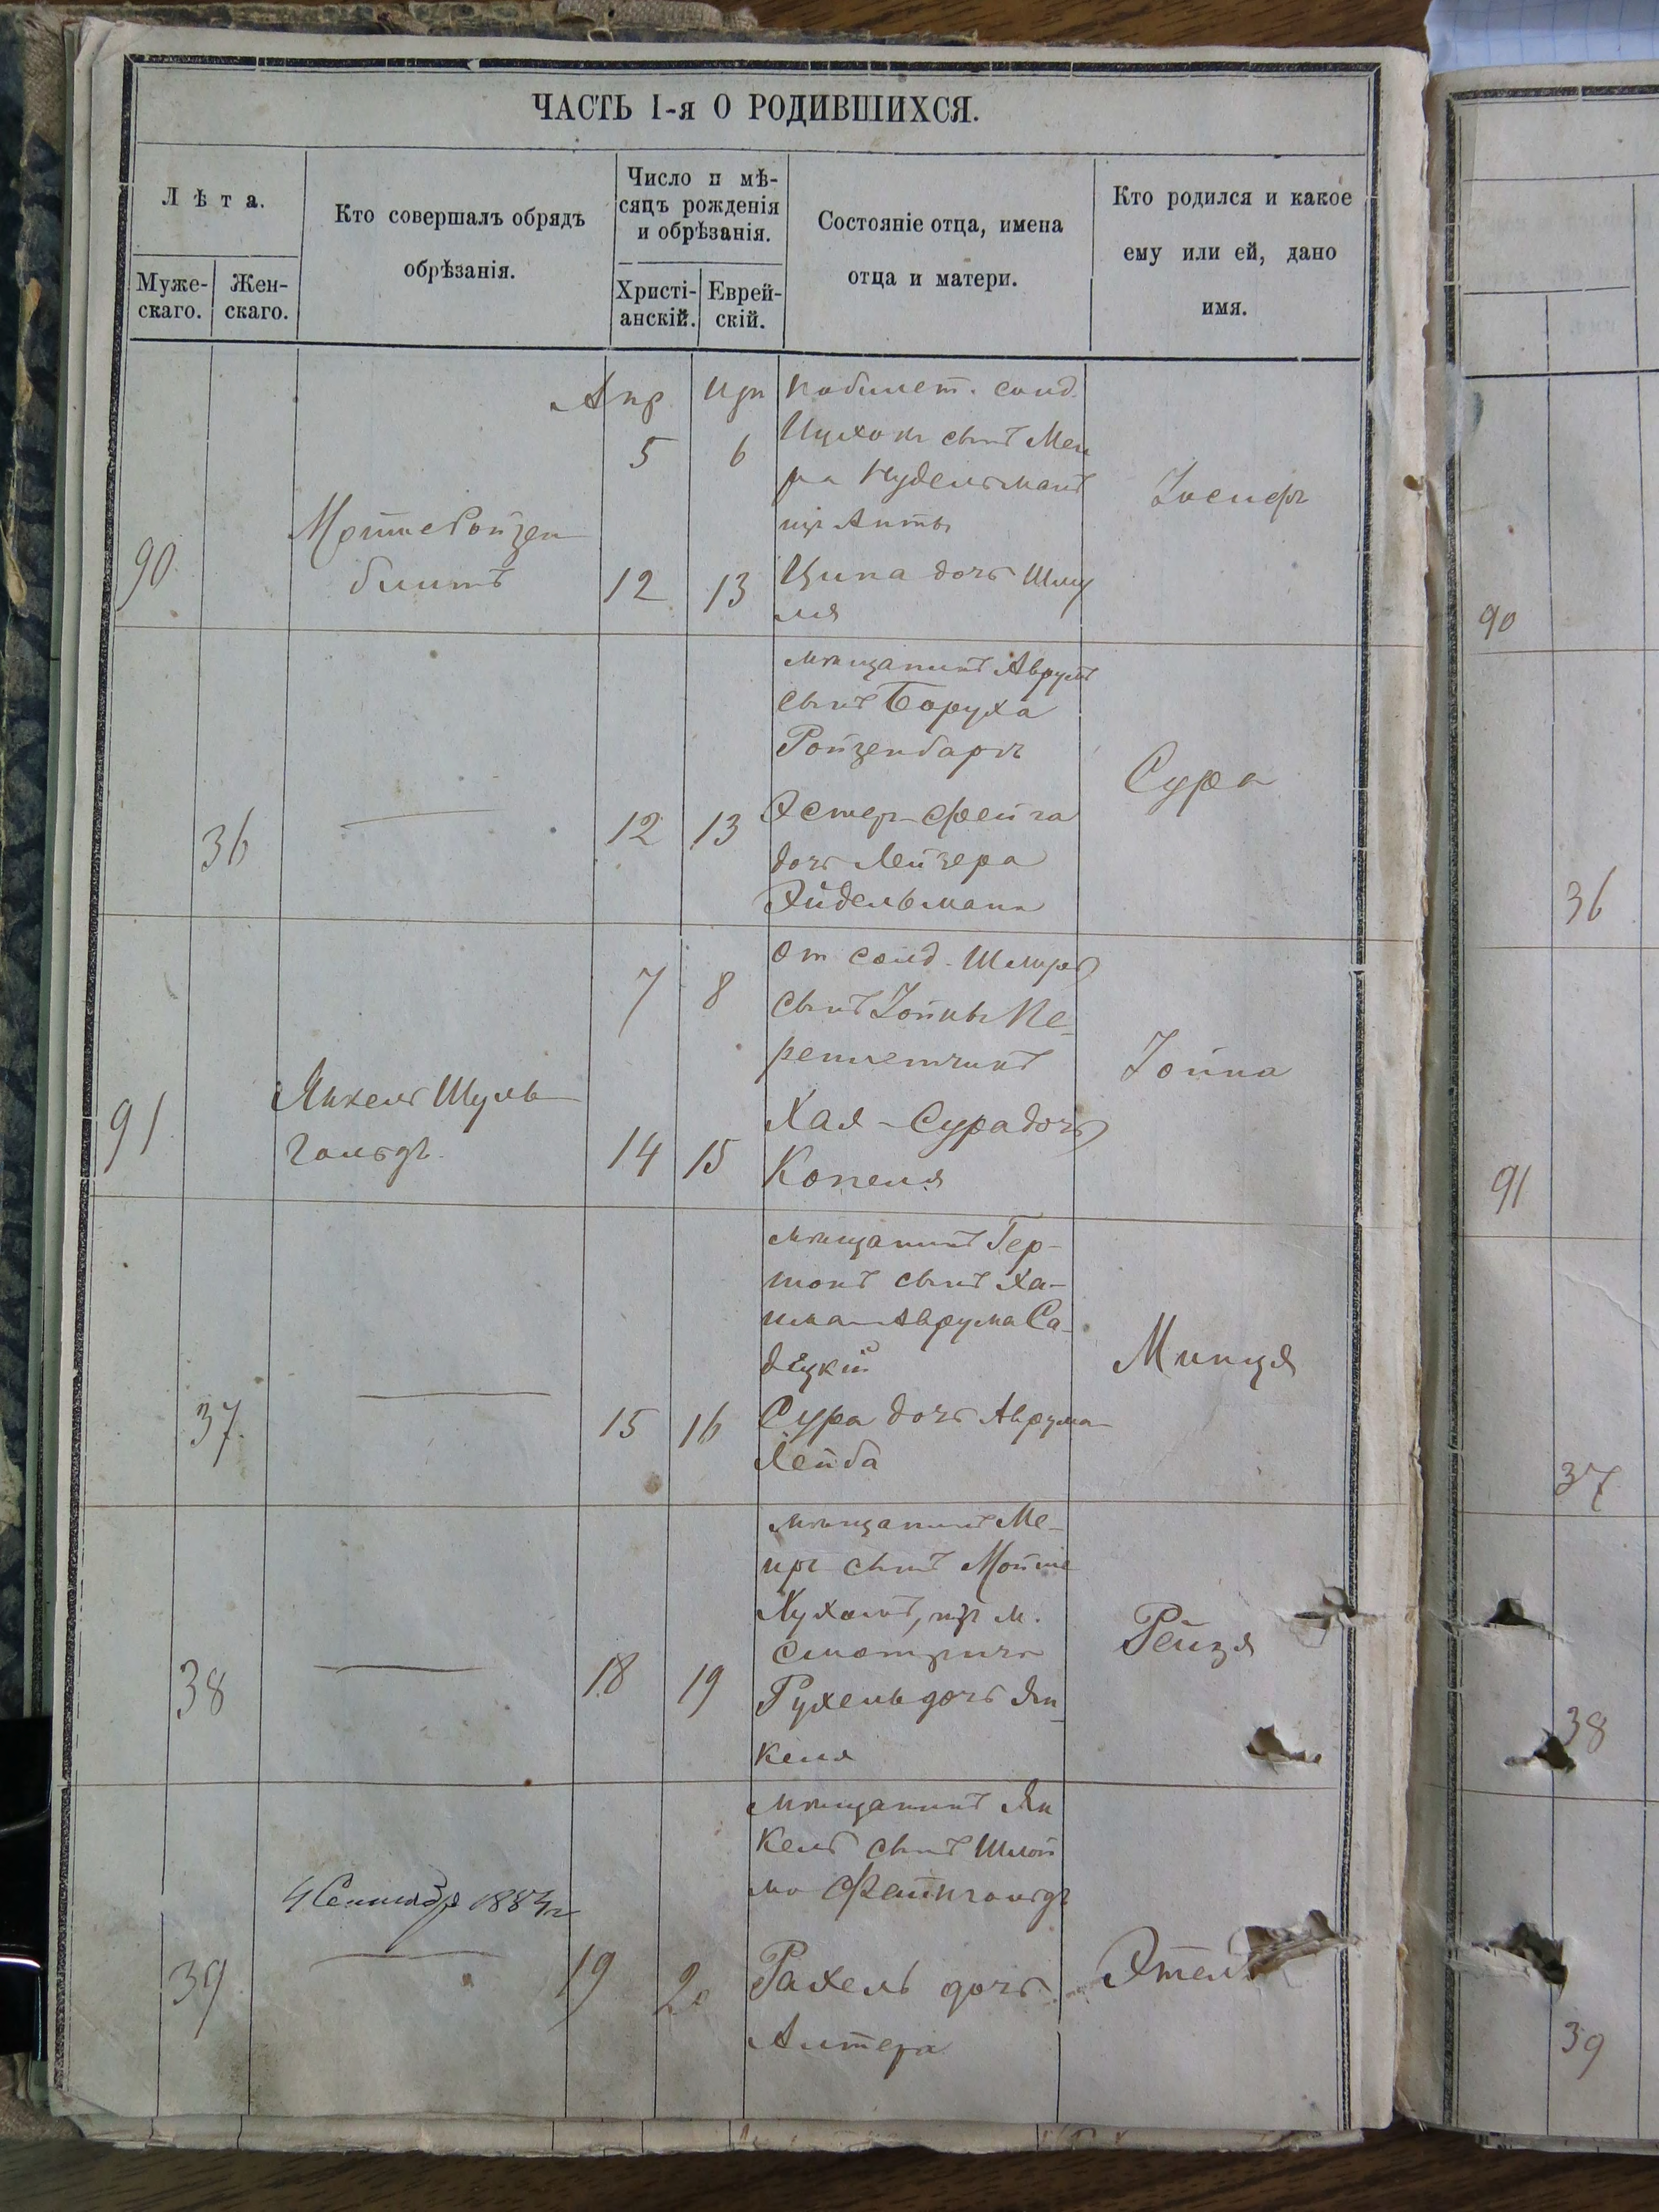 ЧАСТЬ I-я О РОДИВШИХСЯ.
Лѣта.
Муже-
скаго.
Жен-
скаго.
Кто совершалъ обрядъ
обрѣзанія.
Число и мѣ-
сяцъ рожденія
и обрѣзанія.
Христі-
анскій.
Еврей-
скій.
Состояніе отца, имена
отца и матери.
Кто родился и какое
ему или ей, дано
имя.
90
Ройзен
блитъ
Апр
5
12
6
13
сынъ Меи
ра Нудельманъ
Ципа дочь Шму
ля
Іосифъ
36
12
13
мѣщанинъ Аврумъ
сынъ Боруха
Ройзенбаргъ
Эстер-Фейга
дочь Лейзера
Эйдельмана
Сура
91
Янкель Шуль
гольдъ.
7
14
8
15
От солд. Шмиръ
сынъ Іойны Пе-
реплетчикъ
Хая-Сура дочь
Копеля
Іойна
37
15
16
мѣщанинъ Гер-
шонъ сынъ Ха-
има Аврума Са-
децкій
Сура дочь Аврума
Лейба
Минця
38
18
19
мѣщанинъ Ме-
иръ сынъ Мойше
м.
Смотрича
Рухель дочь Ян
келя
Рейзя
39
4 Сентября 1884 г
19
20
мѣщанинъ Ян
кель сынъ Шлой
мо Фейнгольдъ
Рахель дочь
Алтера
Этель
90
36
91
37
38
39